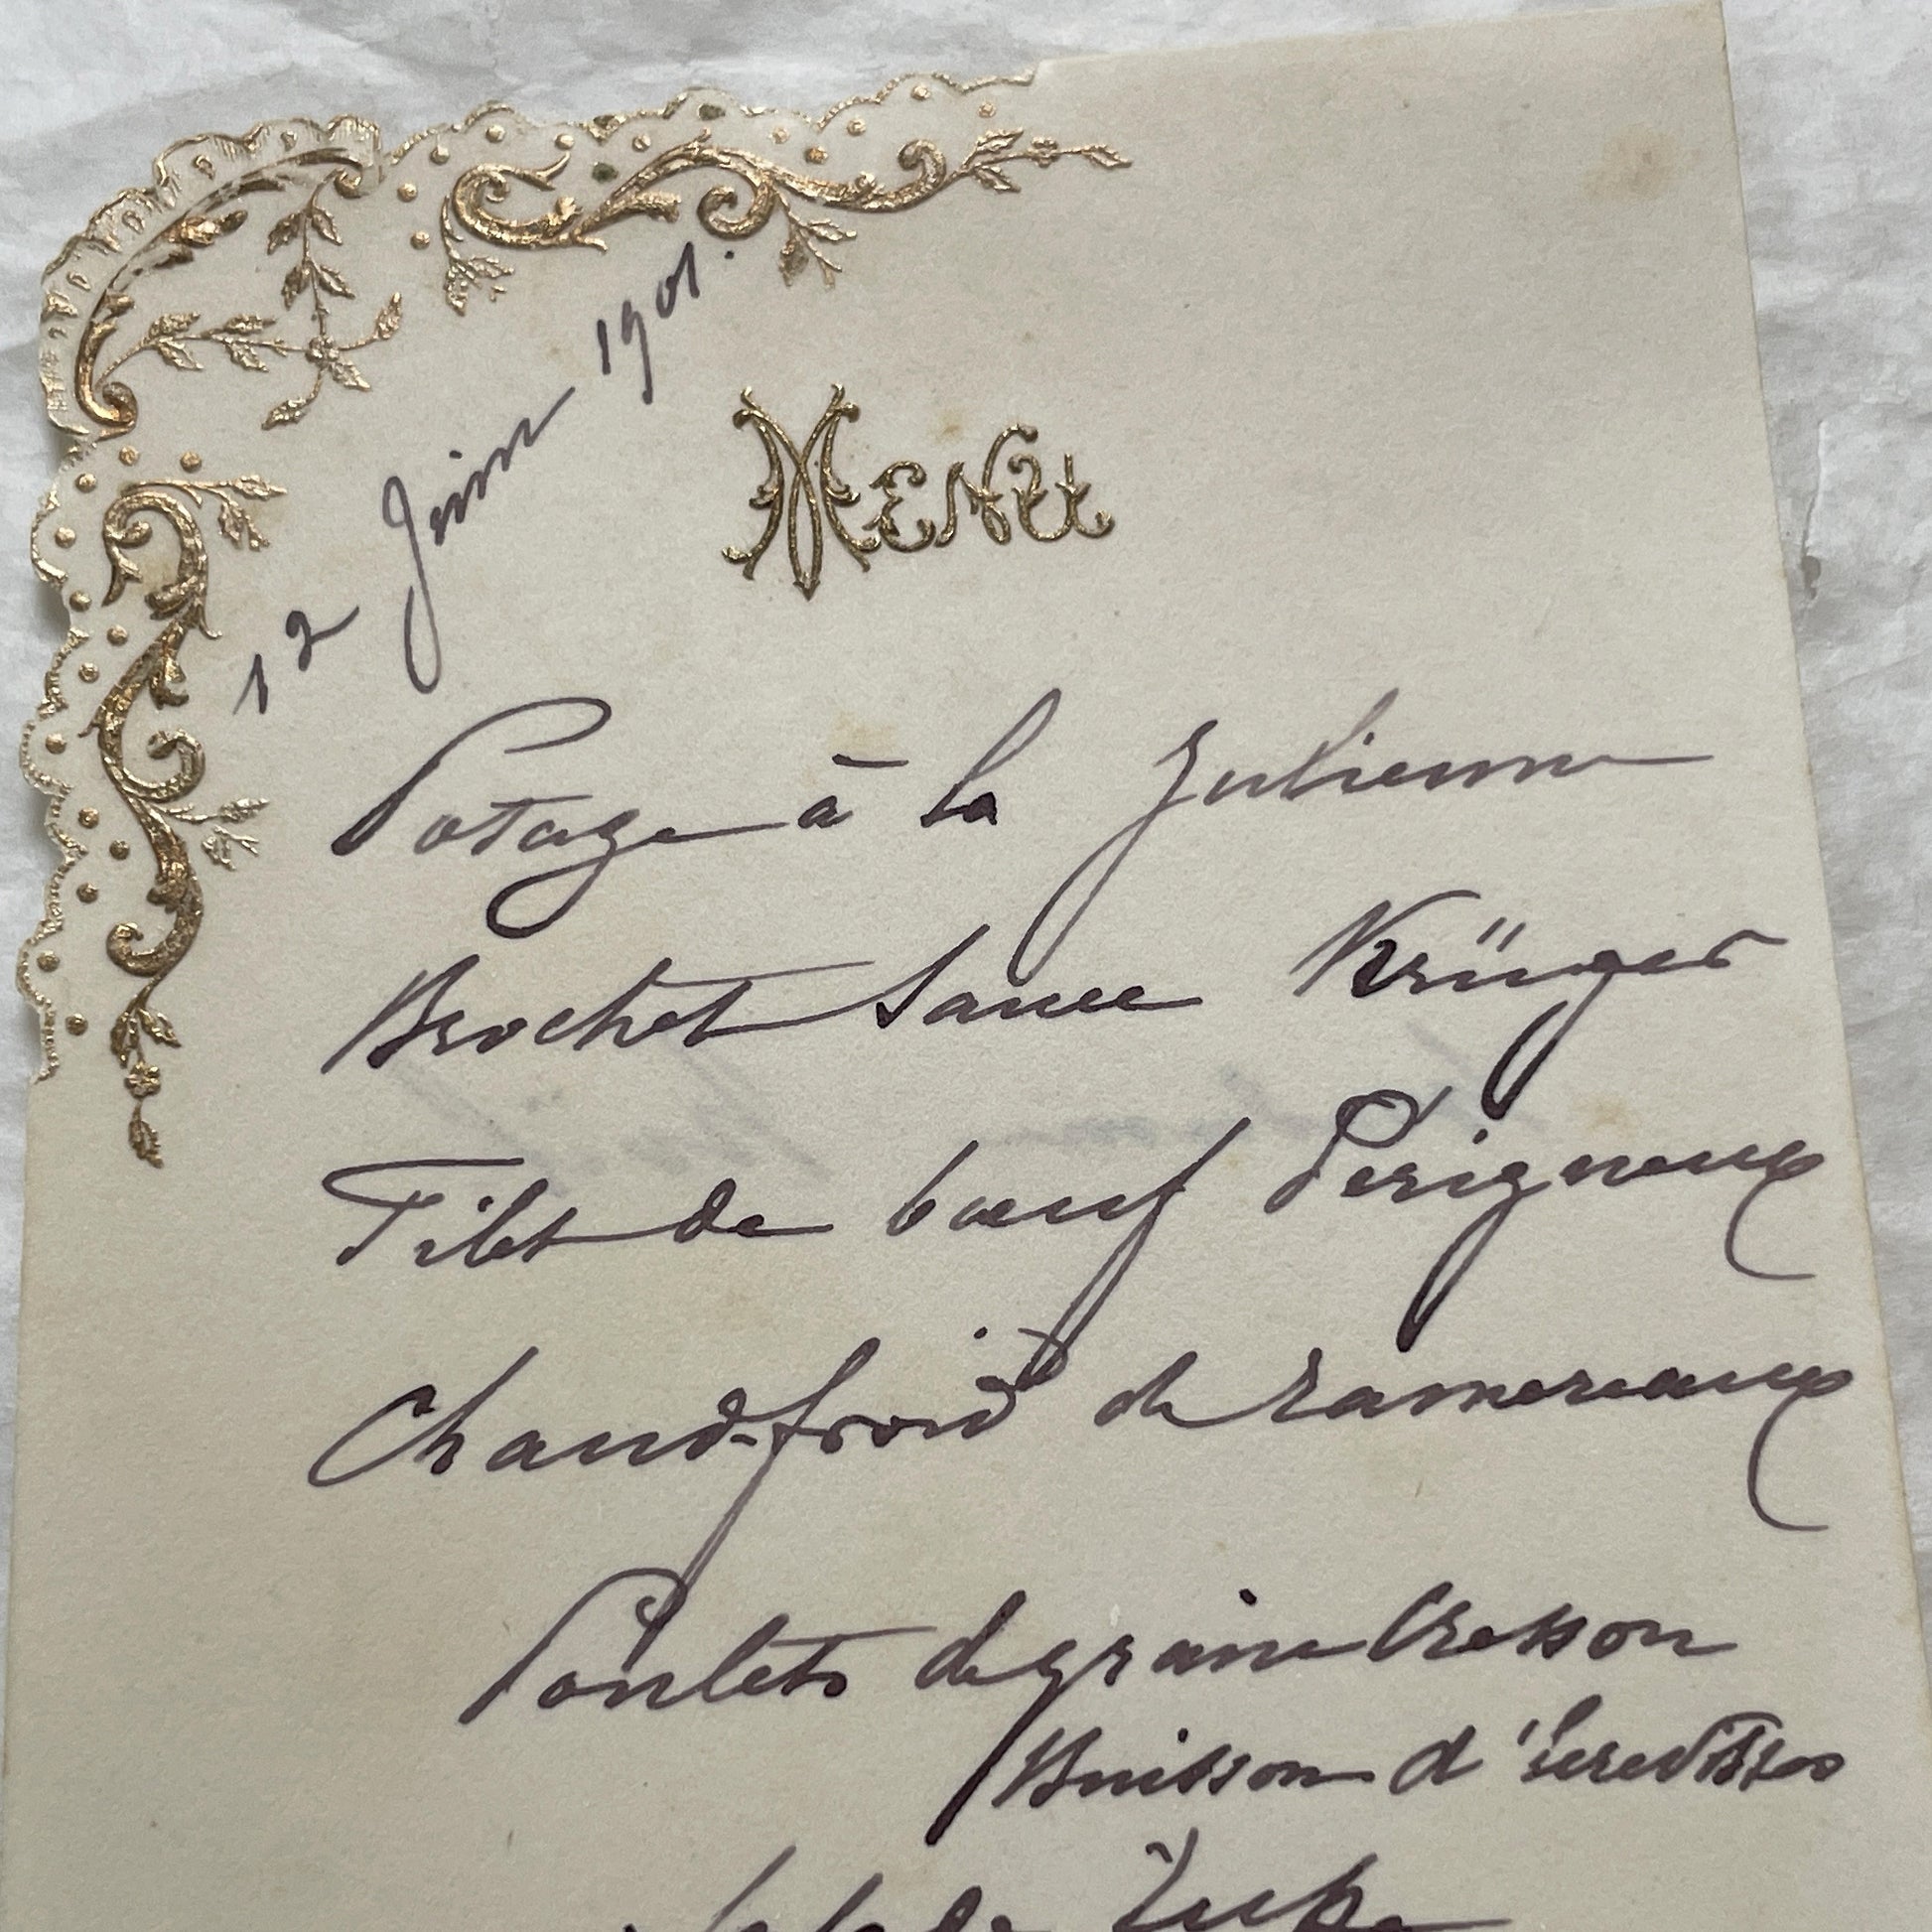 12 Juin 1901.
Menu
Potage à la Julienne
Brochet Sauce Krüger
Filet de bœuf Perigueux
Chaud-froid de ramereaux
Poulets de grain Cresson
Buisson d'Ecrevisses
Salade